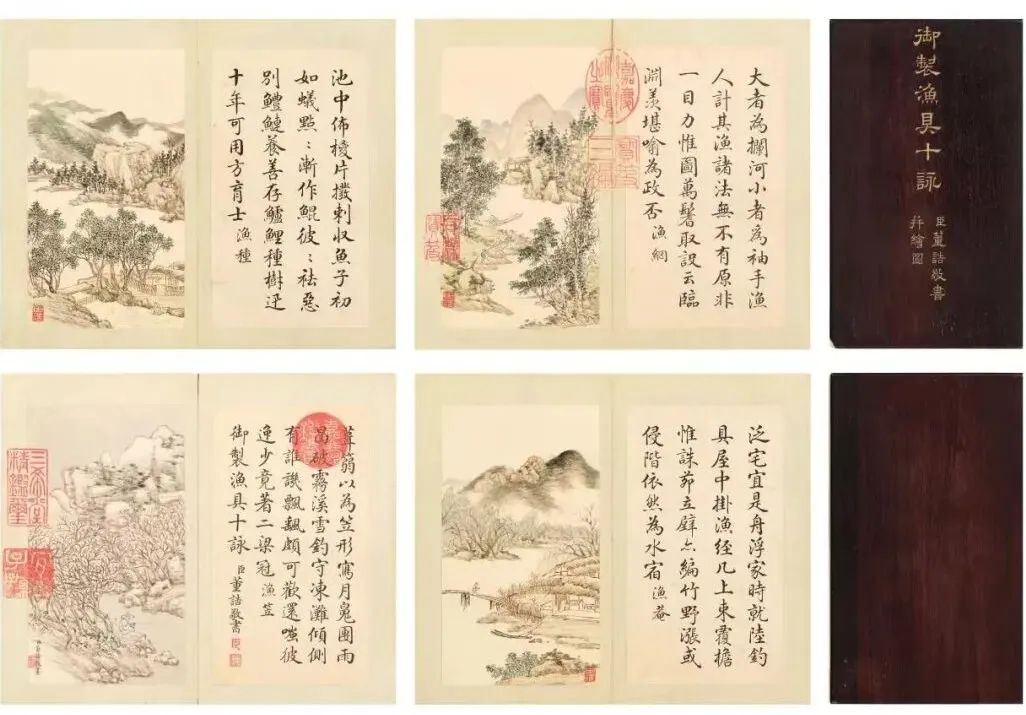 御製漁具十詠
臣董誥敬書
幷繪圖
大者為攔河小者為袖手漁
人計其漁諸法無不有原非
一目力惟圖萬鬐取設云臨
淵羨堪喻為政否 漁網
池中佈椶片撥剌收魚子初
如蟻點〻漸作鯤彼〻祛惡
別鱧鰱養善存鱸鯉種樹迟
十年可用方育士 漁種
泛宅宜是舟浮家時就陸釣
具屋中掛漁經几上束覆檐
惟誅茆立壁亦編竹野漲或
侵階依然為水宿 漁菴
蒻以為笠形寫月嵬團雨
破霧溪雪釣守凍灘傾側
有誰譏飄飄頗可歡還嗤彼
逸少竟著二梁冠 漁笠
御製漁具十詠 臣董誥敬書